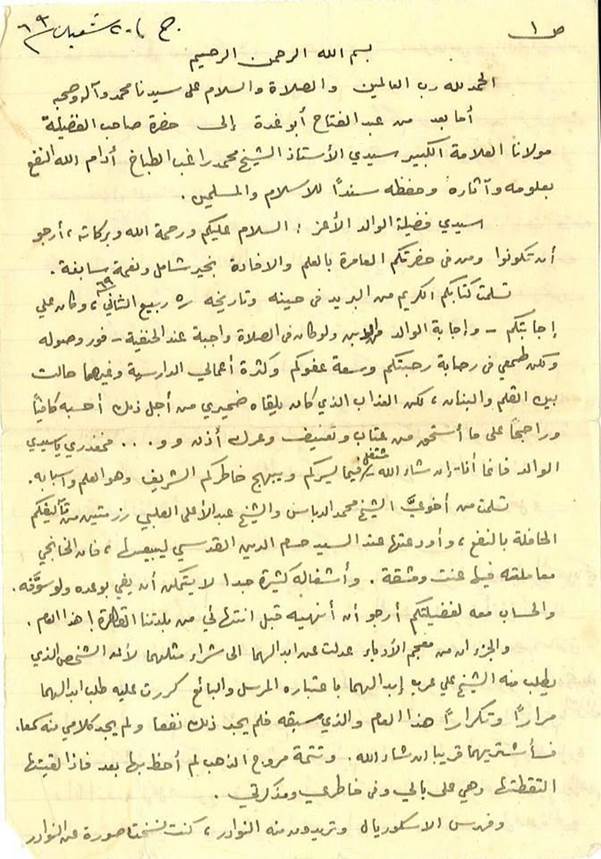 ص ١
ج ٢٠ شعبان ٦٩
بسم الله الرحمن الرحيم
الحمد لله رب العالمين والصلاة والسلام على سيدنا محمد وآله وصحبه
أما بعد من عبد الفتاح أبو غدة إلى حضرة صاحب الفضيلة
مولانا العلامة الكبير سيدي الأستاذ الشيخ محمد راغب الطباخ أدام الله النفع
بعلومه وآثاره وحفظه سنداً للاسلام والمسلمين.
سيدي فضيلة الوالد الأعز : السلام عليكم ورحمة الله وبركاته ، أرجو
أن تكونوا ومن في حضرتكم العامرة بالعلم والافادة بخير شامل ونعمة سابغة .
تسلمت كتابكم الكريم من البريد في حينه وتاريخه ٥ ربيع الثاني ٦٩ ، وكان علي
إجابتكم - وإجابة الوالد ولو كان في الصلاة واجبة عند الحنفية - فور وصوله
ولكن طمعي في رحابة رحبتكم وسعة عفوكم وكثرة أعمالي الدراسية وغيرهما حالت
بين القلم والبنان ، لكن العذاب الذي كان يلقاه ضميري من أجل ذلك أحسبه كافياً
وراجحاً على ما أستحق من عتاب وتعنيف وعرك أذن و و . . . فمعذرة يا سيدي
الوالد فانما أنا - إن شاء الله - مشتغل فيما يسركم ويبهج خاطركم الشريف وهو العلم وأسبابه .
تسلمت من أخويَّ الشيخ محمد الدباس والشيخ عبد الأعلى العلبي رزمتين من تآليفكم
الحافلة بالنفع ، وأودعتها عند السيد حسام الدين القدسي ليبيعها ، فان الخانجي
معاملته فيها عنت ومشقة . وأشغاله كثيرة جدا لا يتمكن أن يفي بوعده ولو سوّفه .
والحساب معه لفضيلتكم أرجو أن أنهيه قبل انتهائي من بلدتنا القاهرة هذا العام .
والجزءان من معجم الأدباء عدلت عن ابدالهما الى شراء مثلهما لأن الشخص الذي
يطلب منه الشيخ علي عرب إبدالهما باعتباره المرسل والبائع كررت عليه طلب ابدالهما
مراراً وتكراراً هذا العام والذي سبقه فلم يجد ذلك نفعا ولم يجد كلامي منه سمعا.
فسأشتريهما قريبا ان شاء الله . وتتمة مروج الذهب لم أحظ بها بعد فاذا لقيتها
التقطتها وهي على بالي وفي خاطري ومذكرتي .
وفهرس الاسكوريال وتريدون منه النوادر ، كنت نسخت صورة عن النوادر